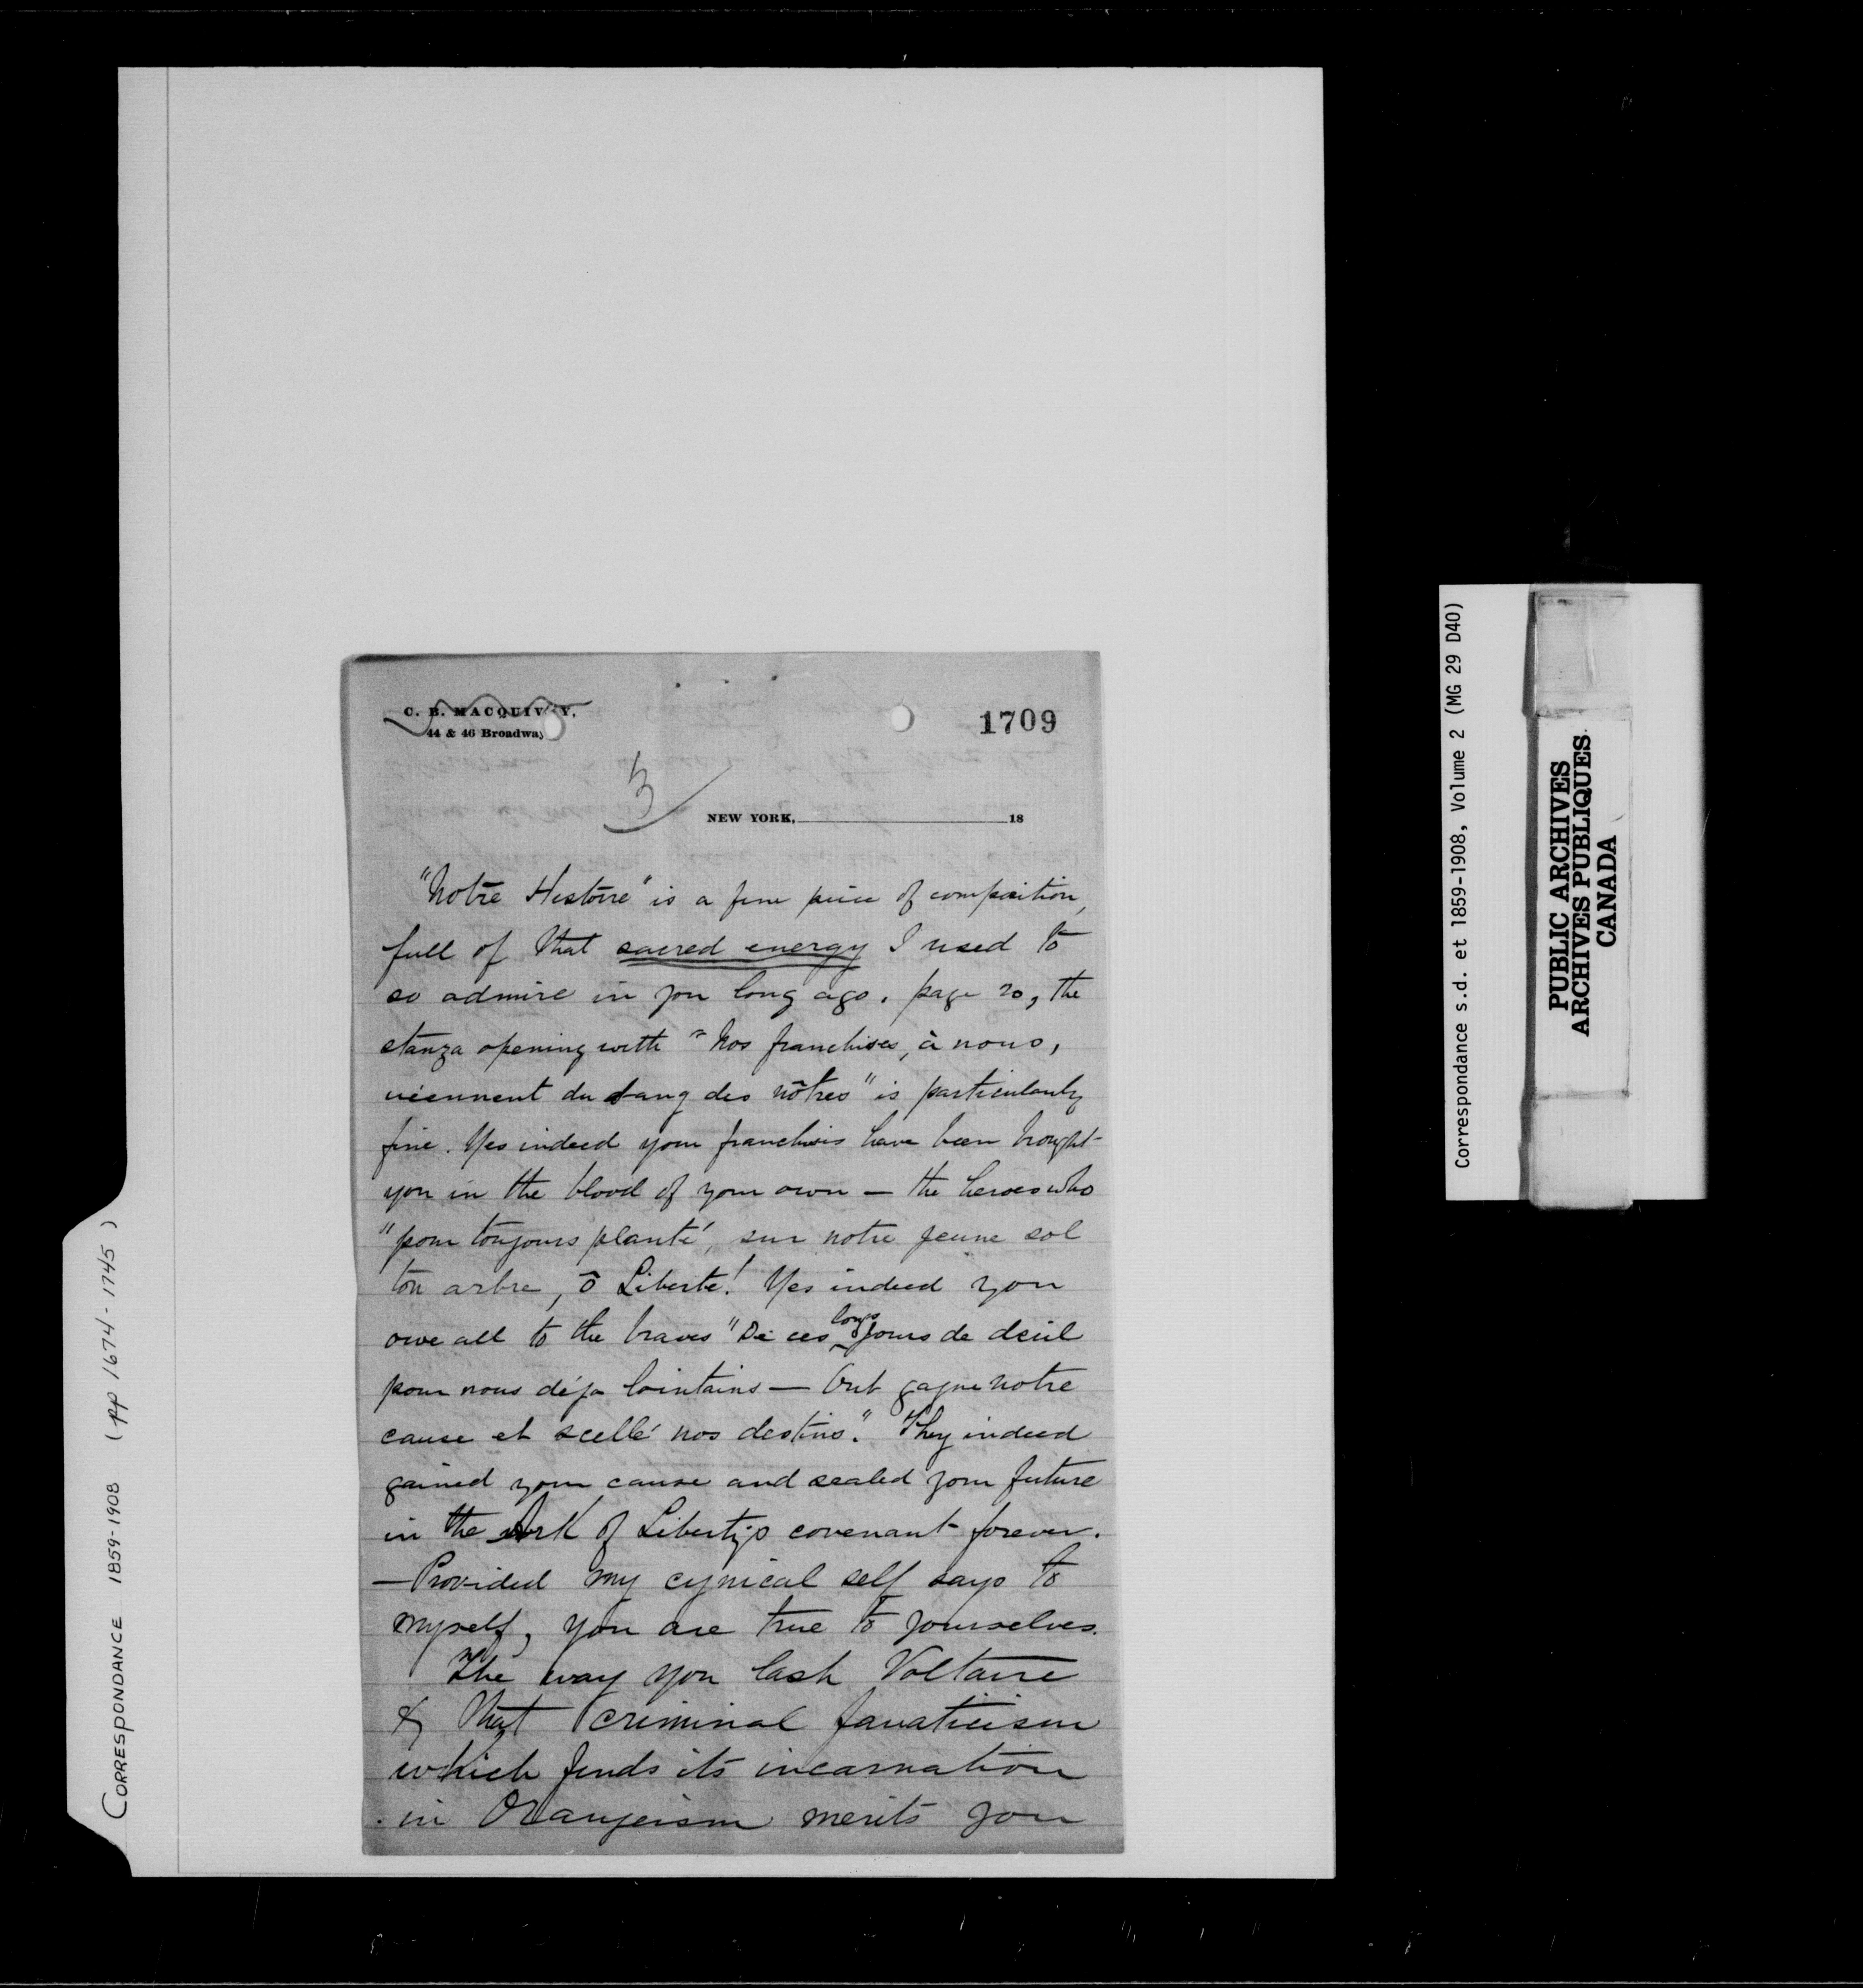 C. B. MACQUIV Y,
44 & 46 Broadway
1709
3
NEW YORK, 18
"Notre Histoire" is a fine piece of composition,
full of that sacred energy I used to
so admire in you long ago. page 20, the
stanza opening with "Nos franchises, à nous,
viennent du sang des nôtres" is particularly
fine. Yes indeed your franchises have been bought
you in the blood of your own — the heroes who
"pour toujours planté, sur notre jeune sol
ton arbre, ô Liberté! Yes indeed you
owe all to the braves "De ces longs jours de deuil
pour nous déja lointains — Ont gagné notre
cause et scellé nos destins." They indeed
gained your cause and sealed your future
in the Ark of Liberty's covenant forever.
— Provided my cynical self says to
myself, you are true to yourselves.
The way you lash Voltaire
& that criminal fanaticism
which finds its incarnation
in Orangeism merits you
CORRESPONDANCE 1859-1908 (pp 1674-1745)
Correspondance s.d. et 1859-1908, Volume 2 (MG 29 D40)
PUBLIC ARCHIVES
ARCHIVES PUBLIQUES
CANADA